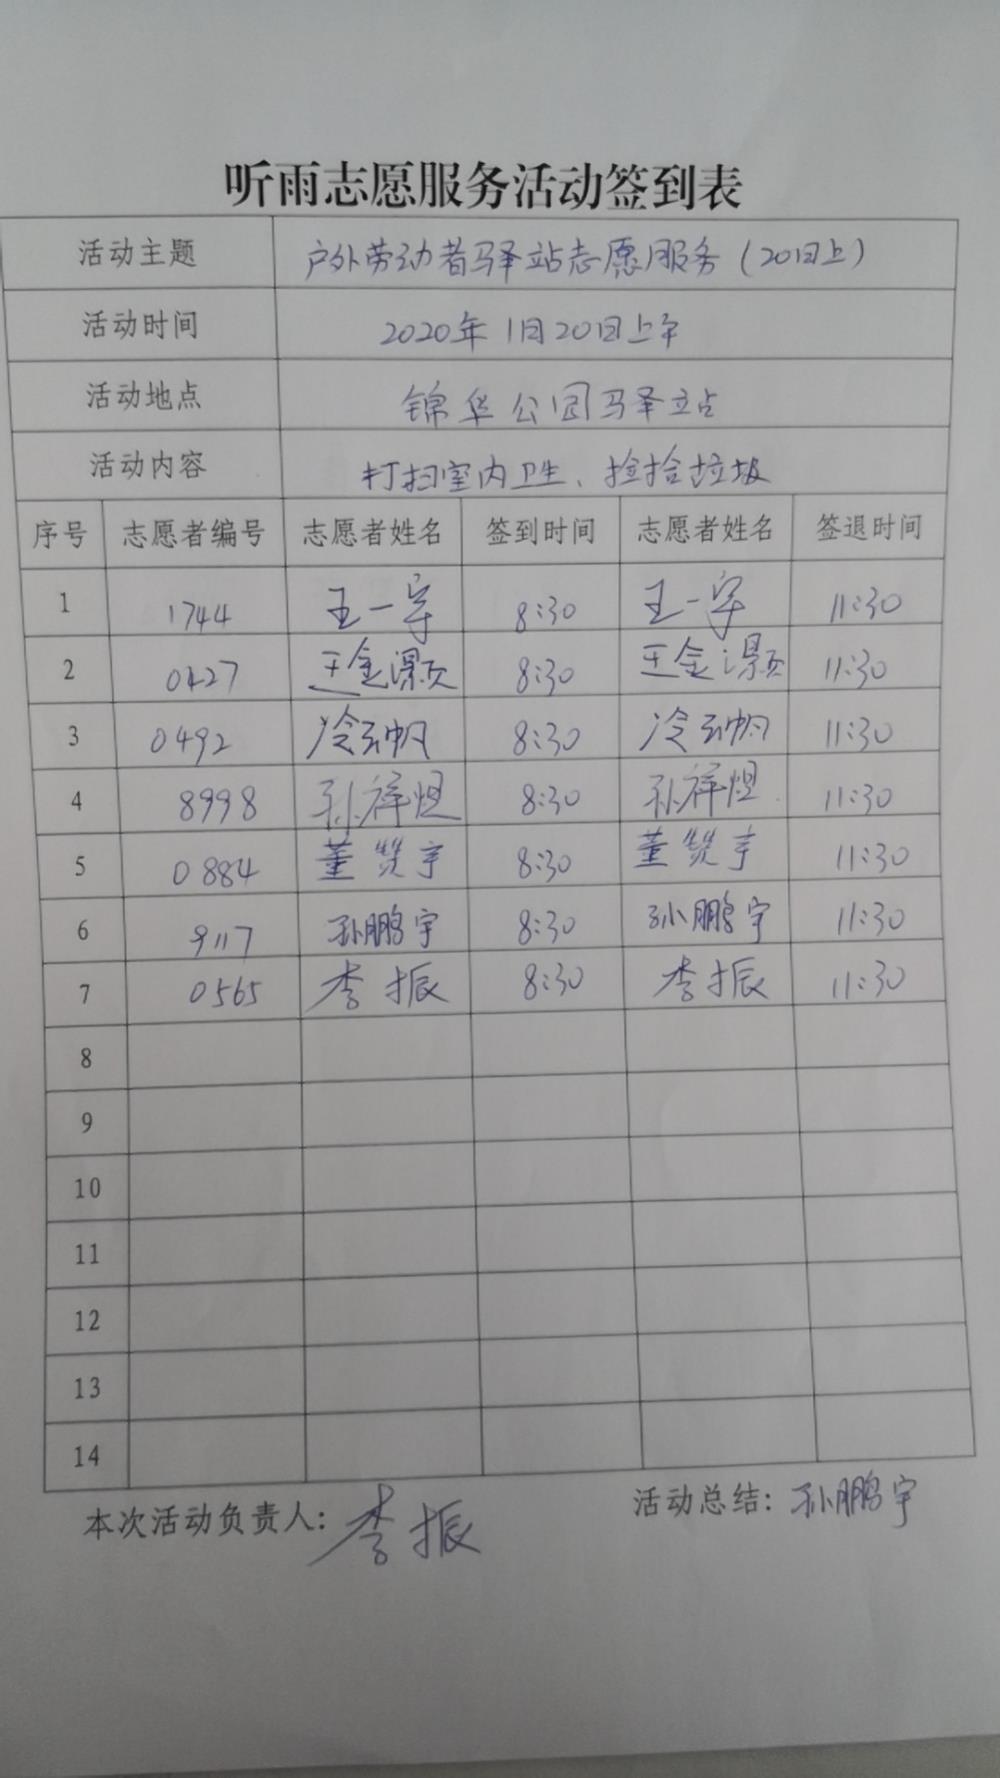 听雨志愿服务活动签到表
活动主题 户外劳动者驿站志愿服务(20日上)
活动时间 2020年1月20日上午
活动地点 锦华公园驿站
活动内容 打扫室内卫生、捡拾垃圾
序号 志愿者编号 志愿者姓名 签到时间 志愿者姓名 签退时间
1 1744 王一宇 8:30 王一宇 11:30
2 0427 王金灏 8:30 王金灏 11:30
3 0492 冷云帆 8:30 冷云帆 11:30
4 8998 孙祥煜 8:30 孙祥煜 11:30
5 0884 董赞宇 8:30 董赞宇 11:30
6 9117 孙鹏宇 8:30 孙鹏宇 11:30
7 0565 李振 8:30 李振 11:30
8
9
10
11
12
13
14
本次活动负责人: 李振 活动总结: 孙鹏宇